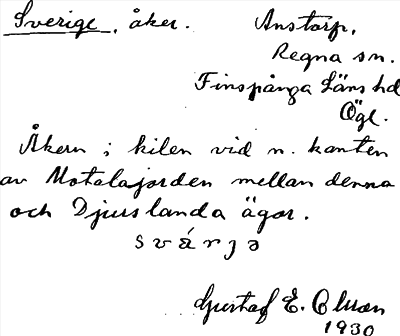 Sverige, åker. Anstorp,
Regna sn.
Finspånga Läns hd
Ögl.
Åkern i kilen vid n. kanten
av Motalajorden mellan denna
och Djurslanda ägor.
svárjə
Gustaf E. Olsson
1930